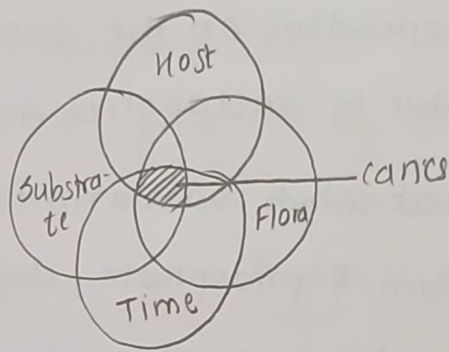 Host
Substra-
te
Flora
Time
canes